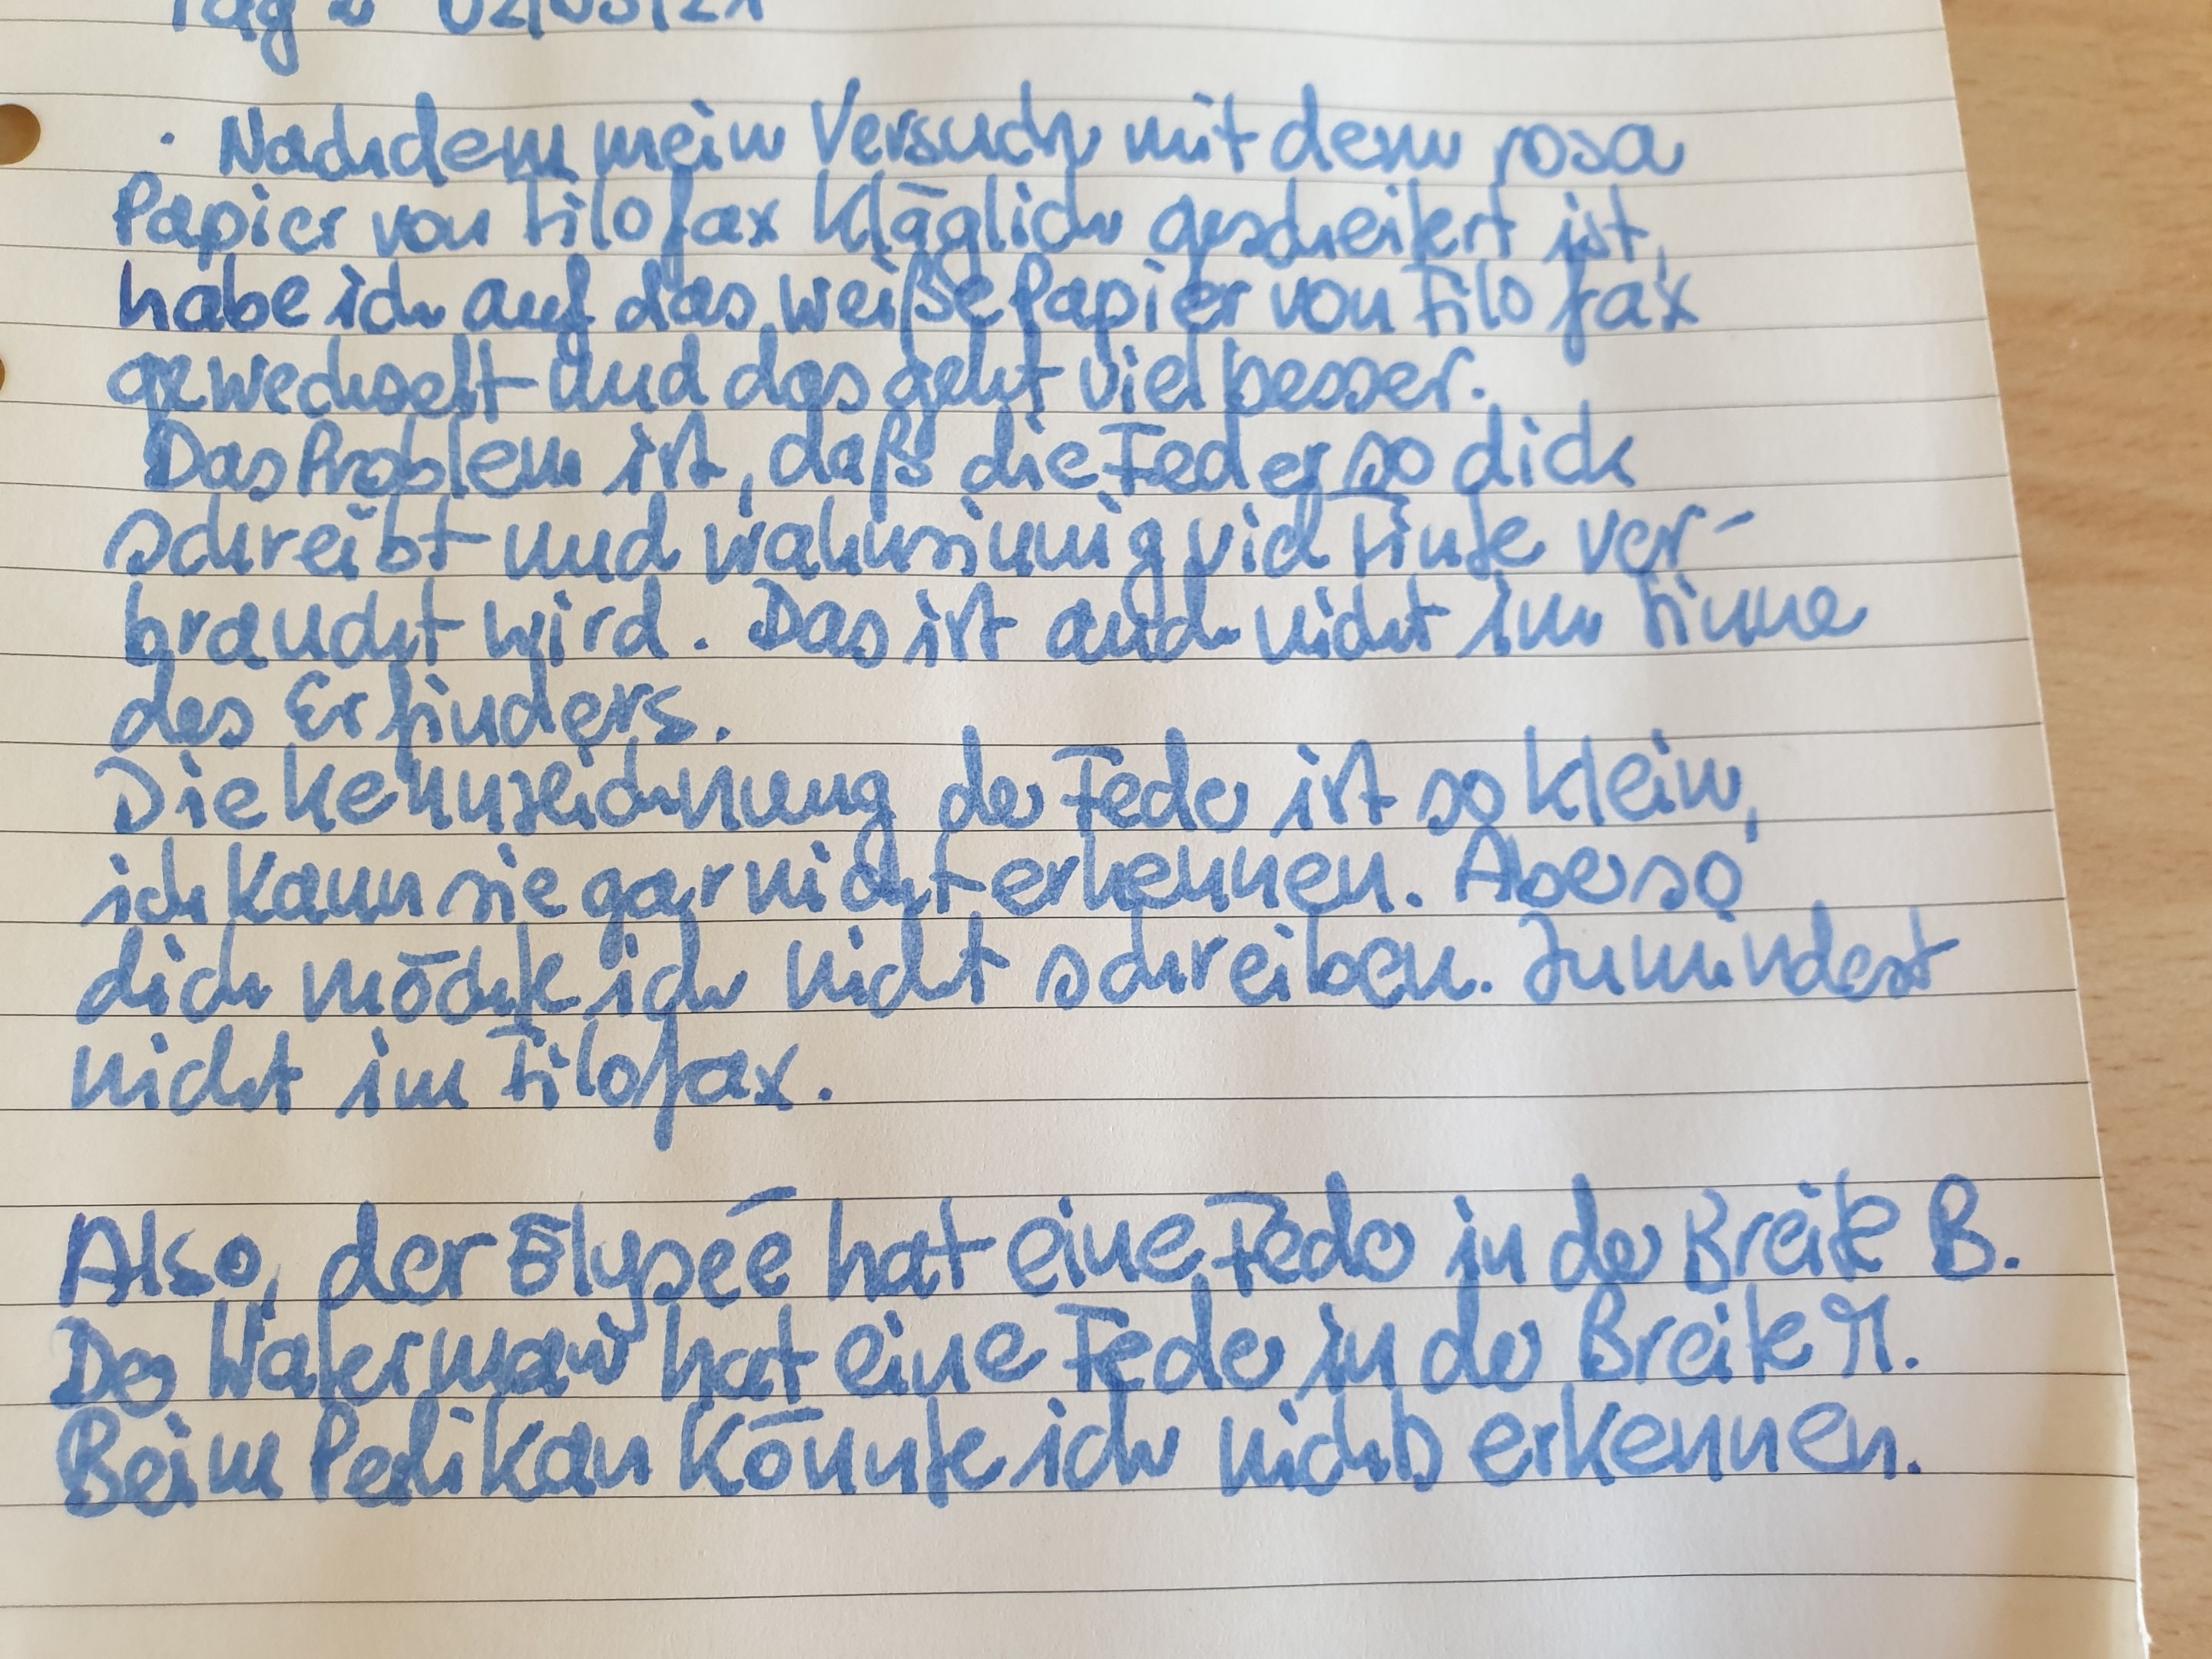 Tag 2 02/03/21
· Nachdem mein Versuch mit dem rosa
Papier von Filofax kläglich gescheitert ist,
habe ich auf das weiße Papier von Filofax
gewechselt und das geht viel besser.
Das Problem ist, daß die Feder so dick
schreibt und wahnsinnig viel Tinte ver-
braucht wird. Das ist auch nicht im Sinne
des Erfinders.
Die Kennzeichnung der Feder ist so klein,
ich kann sie gar nicht erkennen. Aber so
dick möchte ich nicht schreiben. Zumindest
nicht im Filofax.
Also, der Elyseé hat eine Feder in der Breite B.
Der Waterman hat eine Feder in der Breite M.
Beim Pelikan konnte ich nichts erkennen.